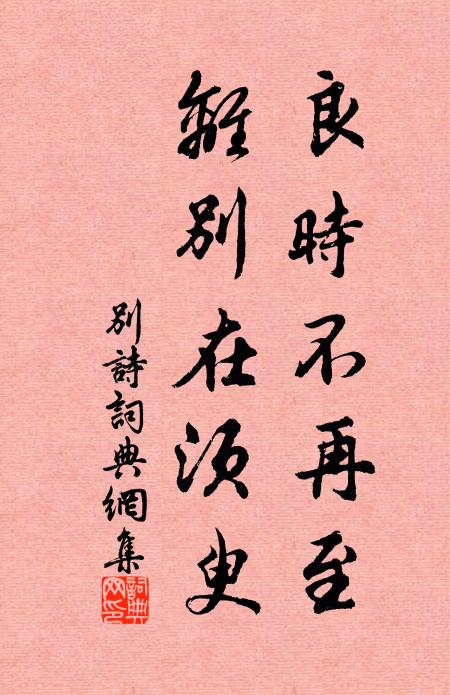 良時不再至
離別在須臾
別詩詞典網集
詞典網印